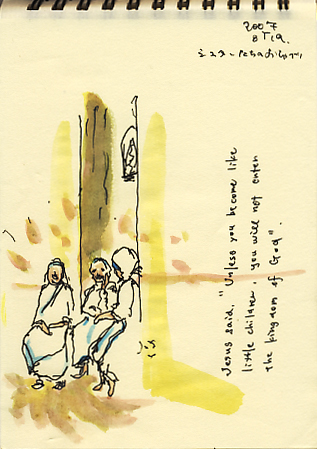 2007
シスターたちのおしゃべり
Jesus said. "Unless you become like
little children, you will not enter
the kingdom of God".